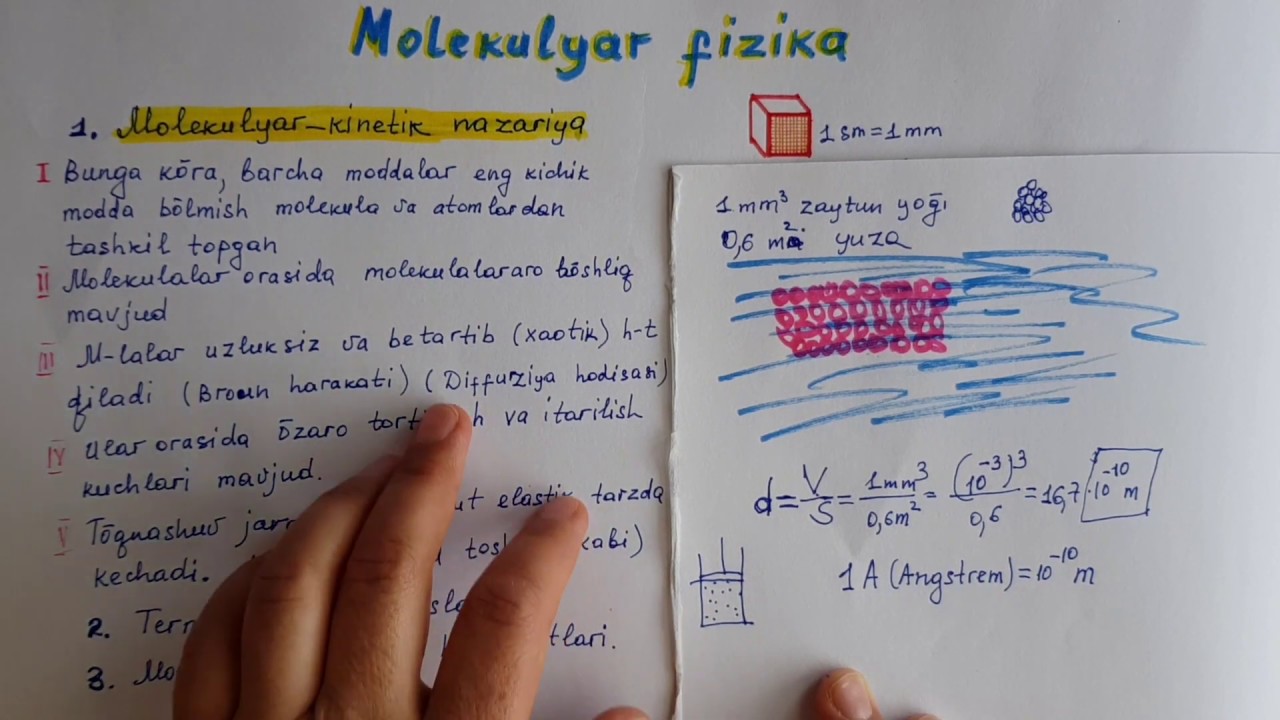 Molekulyar fizika
1. Molekulyar-kinetik nazariya
I Bunga kōra, barcha moddalar eng kichik
modda bōlmish molekula va atomlardan
tashkil topgan
II Molekulalar orasida molekulalararo bōshliq
mavjud
III M-lalar uzluksiz va betartib (xaotik) h-t
qiladi (Broun harakati) (Diffuziya hodisasi)
IV Ular orasida ōzaro va itarilish
kuchlari mavjud.
V Tōqnashuv elastik tarzda
kechadi. kabi)
2.
3.
1 sm = 1 mm
1 mm³ zaytun yoğı
0,6 m². yuza
d = V/S = 1mm³/0,6m² = (10⁻³)³/0,6 = 16,7 · 10⁻¹⁰ m
1 A (Angstrem) = 10⁻¹⁰ m